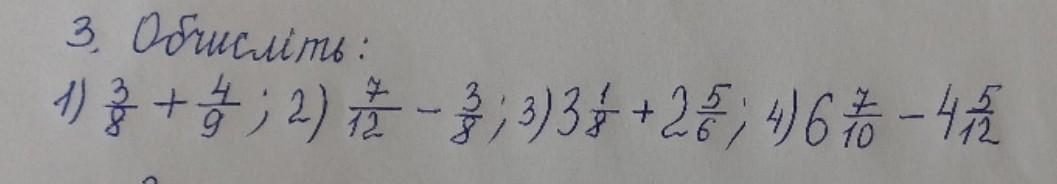 3. Обчисліть:
1) 3/8 + 4/9 ; 2) 7/12 - 3/8 ; 3) 3 1/8 + 2 5/6 ; 4) 6 7/10 - 4 5/12